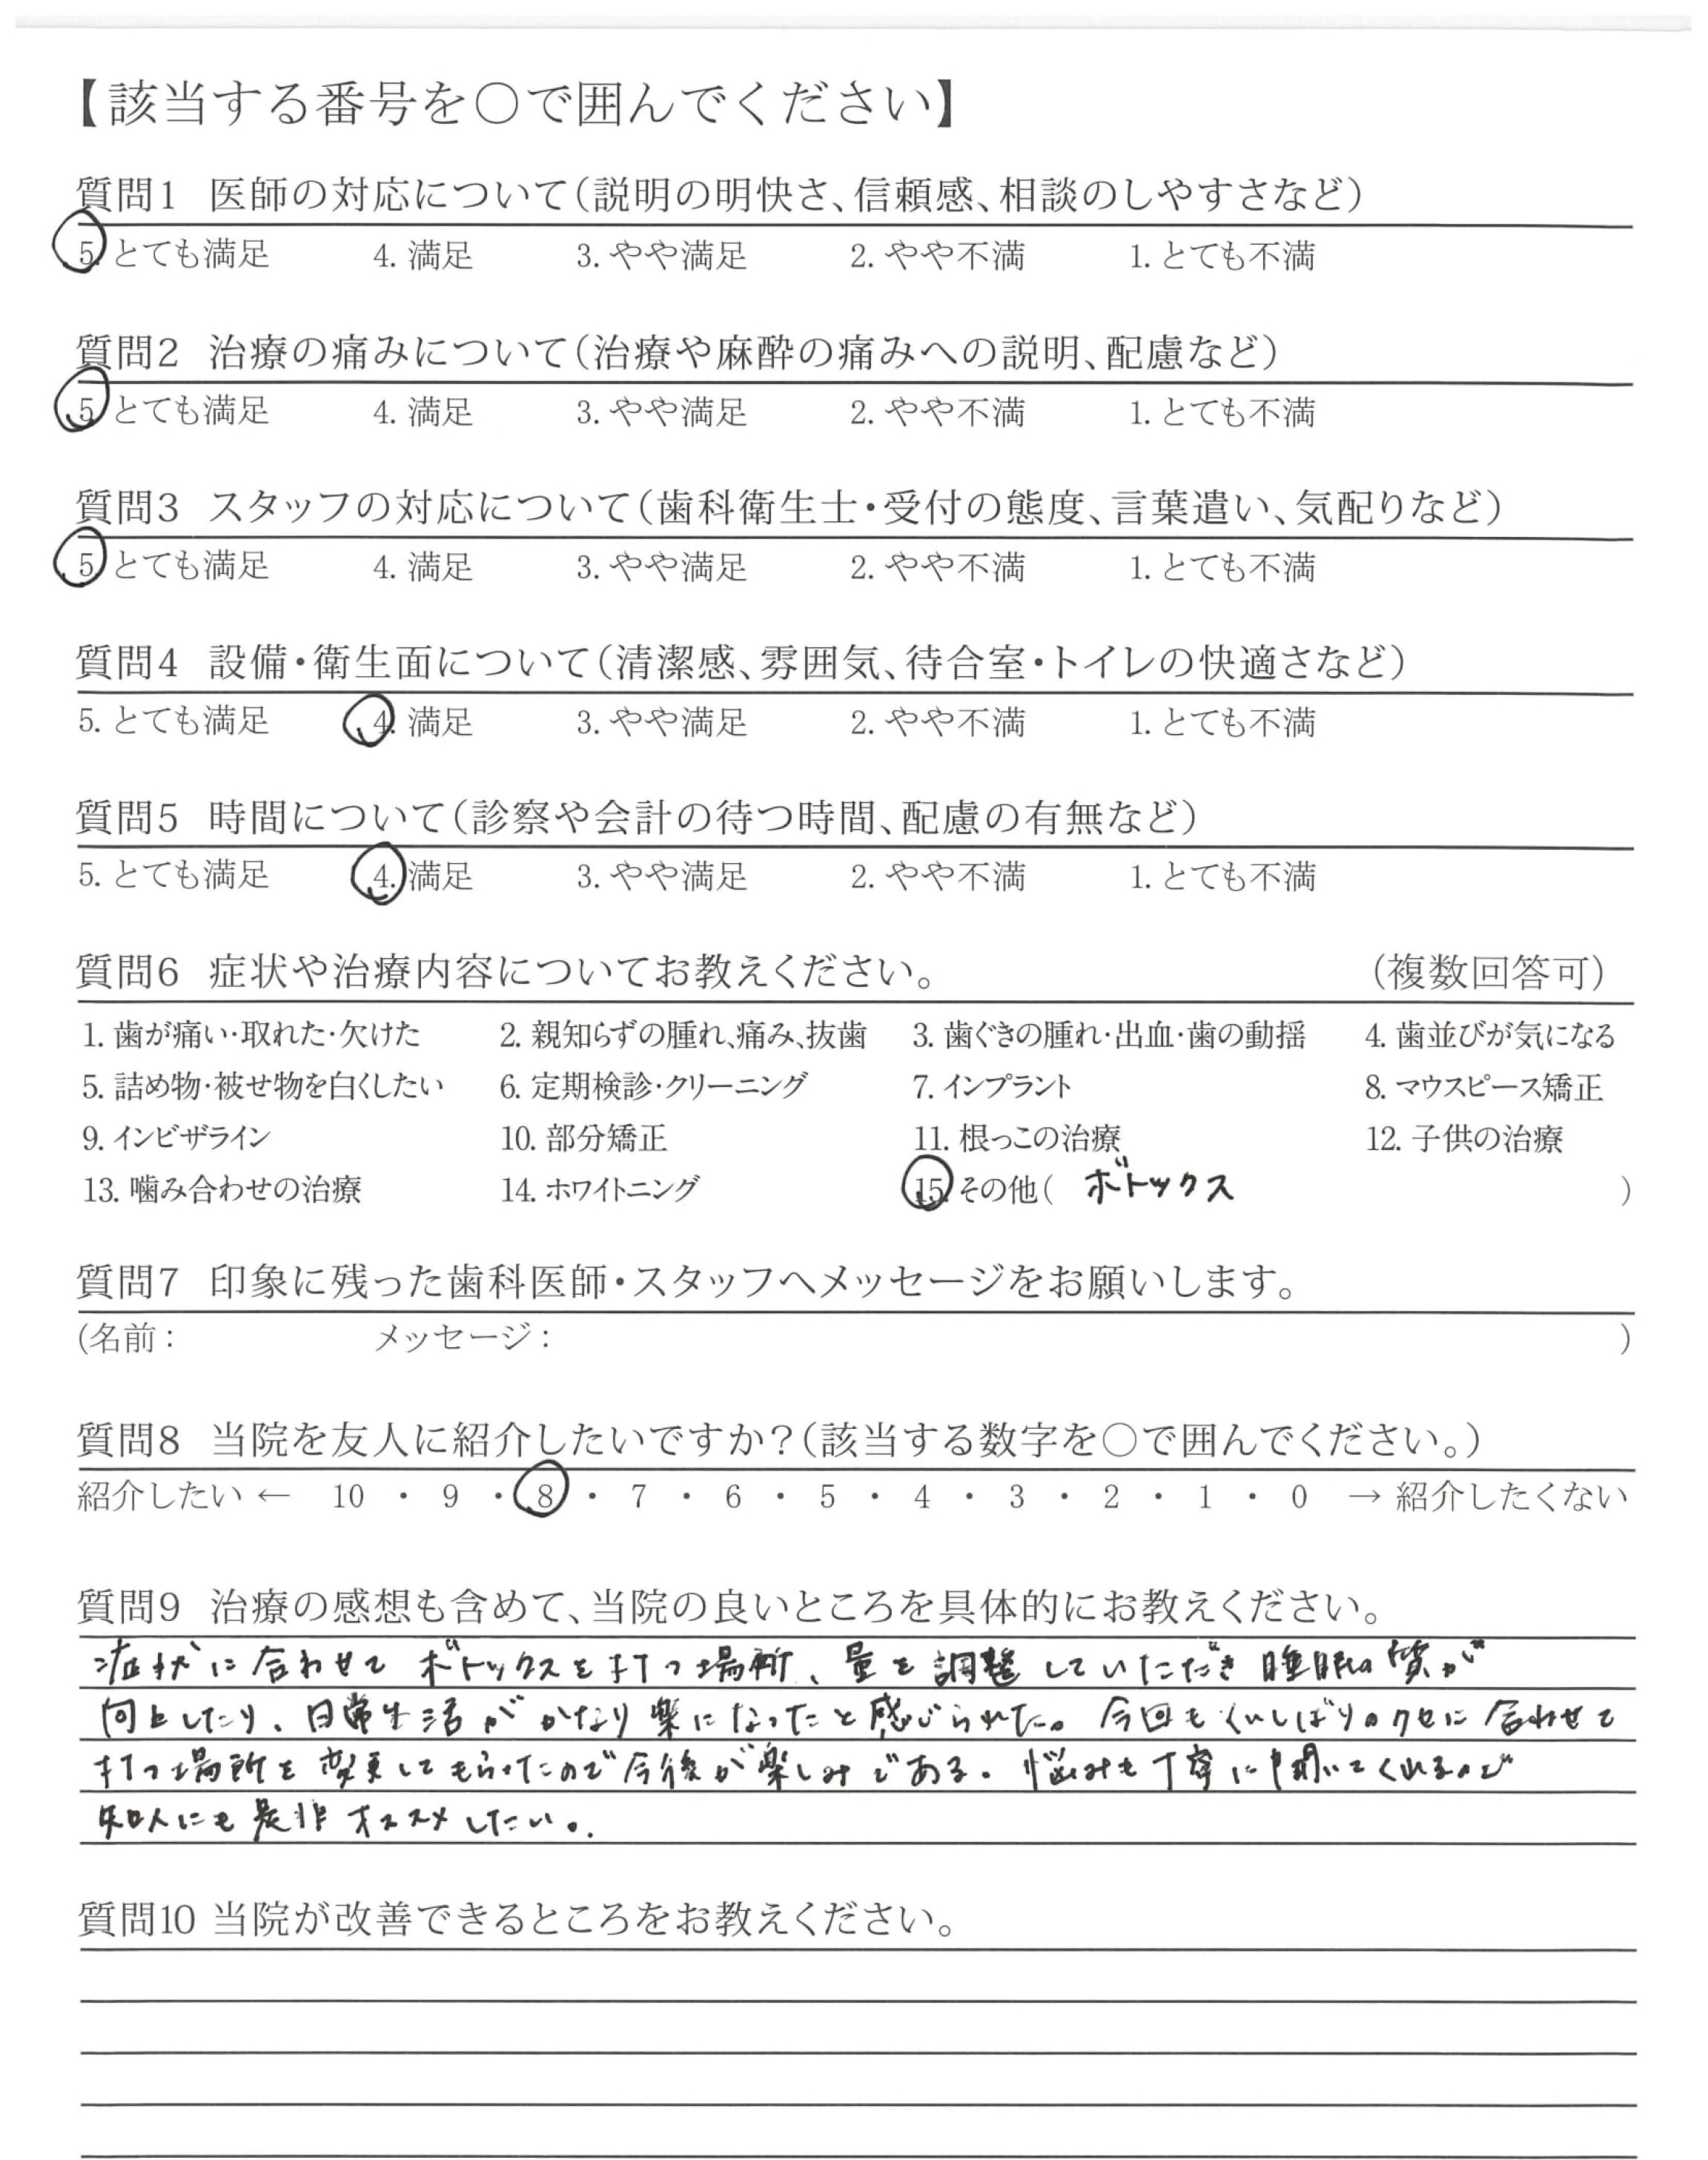 【該当する番号を○で囲んでください】
質問1 医師の対応について(説明の明快さ、信頼感、相談のしやすさなど)
5. とても満足 4. 満足 3. やや満足 2. やや不満 1. とても不満
質問2 治療の痛みについて(治療や麻酔の痛みへの説明、配慮など)
5. とても満足 4. 満足 3. やや満足 2. やや不満 1. とても不満
質問3 スタッフの対応について(歯科衛生士・受付の態度、言葉遣い、気配りなど)
5. とても満足 4. 満足 3. やや満足 2. やや不満 1. とても不満
質問4 設備・衛生面について(清潔感、雰囲気、待合室・トイレの快適さなど)
5. とても満足 4. 満足 3. やや満足 2. やや不満 1. とても不満
質問5 時間について(診察や会計の待つ時間、配慮の有無など)
5. とても満足 4. 満足 3. やや満足 2. やや不満 1. とても不満
質問6 症状や治療内容についてお教えください。 (複数回答可)
1. 歯が痛い・取れた・欠けた 2. 親知らずの腫れ、痛み、抜歯 3. 歯ぐきの腫れ・出血・歯の動揺 4. 歯並びが気になる
5. 詰め物・被せ物を白くしたい 6. 定期検診・クリーニング 7. インプラント 8. マウスピース矯正
9. インビザライン 10. 部分矯正 11. 根っこの治療 12. 子供の治療
13. 噛み合わせの治療 14. ホワイトニング 15. その他( ボトックス )
質問7 印象に残った歯科医師・スタッフへメッセージをお願いします。
(名前: メッセージ: )
質問8 当院を友人に紹介したいですか?(該当する数字を○で囲んでください。)
紹介したい ← 10 ・ 9 ・ 8 ・ 7 ・ 6 ・ 5 ・ 4 ・ 3 ・ 2 ・ 1 ・ 0 → 紹介したくない
質問9 治療の感想も含めて、当院の良いところを具体的にお教えください。
症状に合わせてボトックスを打つ場所、量を調整していただき睡眠の質が
向上したり、日常生活がかなり楽になったと感じられた。今回もくいしばりのクセに合わせて
打つ場所を変更してもらったので今後が楽しみである。悩みも丁寧に聞いてくれるので
知人にも是非オススメしたい。
質問10 当院が改善できるところをお教えください。